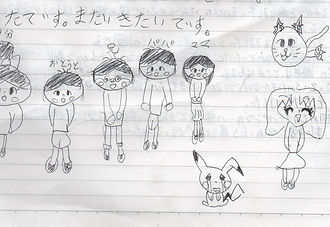 たです。またいきたいです。
分
おとうと
兄
パパ
ママ